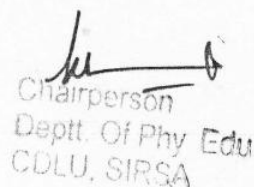 Chairperson
Deptt. Of Phy Edu
CDLU, SIRSA